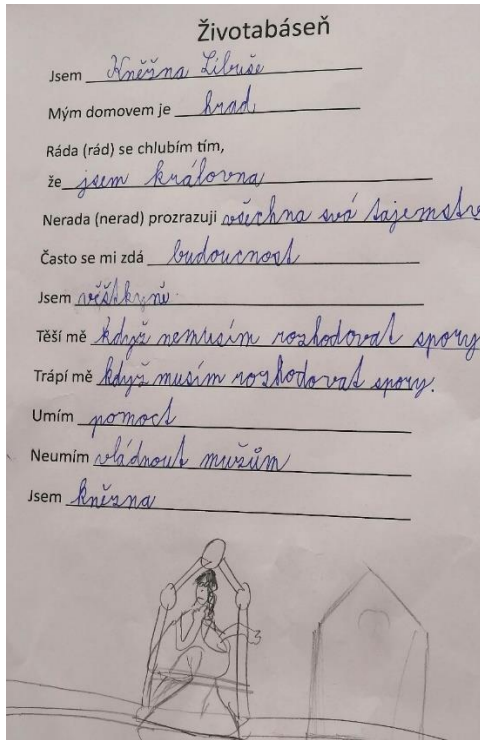 Životabáseň
Jsem Kněžna Libuše
Mým domovem je hrad
Ráda (rád) se chlubím tím,
že jsem královna
Nerada (nerad) prozrazuji všechna svá tajemstv
Často se mi zdá budoucnost
Jsem věštkyně.
Těší mě když nemusím rozhodovat spory
Trápí mě když musím rozhodovat spory.
Umím pomoct
Neumím vládnout mužům
Jsem kněžna